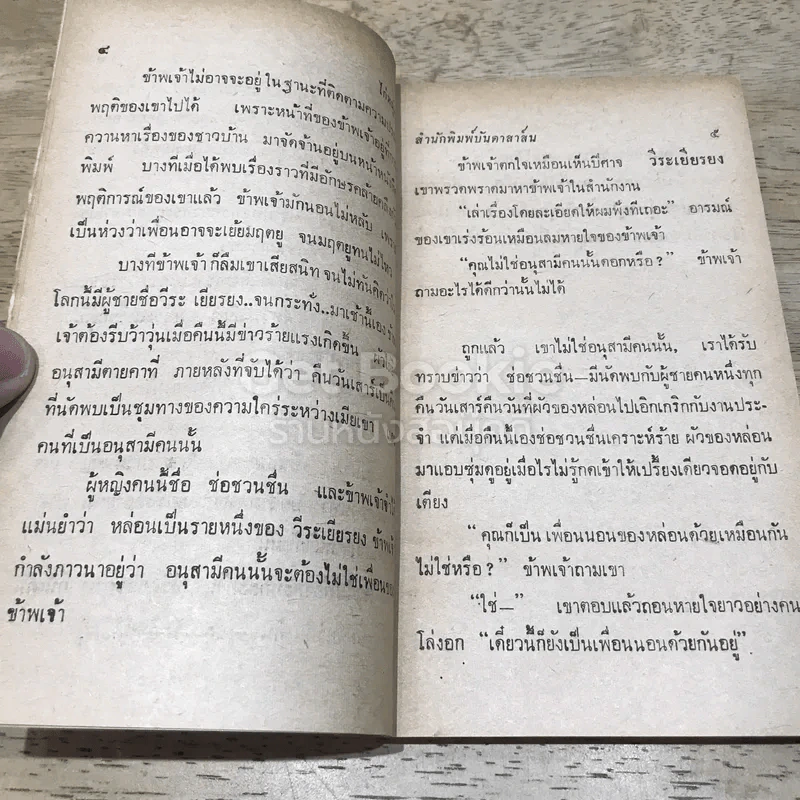 ๔
ข้าพเจ้าไม่อาจจะอยู่ในฐานะที่ติดตามความ
พฤติของเขาไปได้ เพราะหน้าที่ของข้าพเจ้าอยู่ที่
ควานหาเรื่องของชาวบ้าน มาจัดจ้านอยู่บนหน้าหนังสือ
พิมพ์ บางทีเมื่อได้พบเรื่องราวที่มีอักษรคล้าย
พฤติการณ์ของเขาแล้ว ข้าพเจ้ามักนอนไม่หลับ
เป็นห่วงว่าเพื่อนอาจจะเย้ยมฤตยู จนมฤตยูทนไม่ไหว
บางทีข้าพเจ้าก็ลืมเขาเสียสนิท จนไม่ทันคิดว่า
โลกนี้มีผู้ชายชื่อวีระ เยียรยง..จนกระทั่ง..มาเช้านี้เอง
เจ้าต้องรีบว้าวุ่นเมื่อคืนนี้มีข่าวร้ายแรงเกิดขึ้น
อนุสามีตายคาที่ ภายหลังที่จับได้ว่า คืนวันเสาร์เป็น
ที่นัดพบเป็นชุมทางของความใคร่ระหว่างเมียเขา
คนที่เป็นอนุสามีคนนั้น
ผู้หญิงคนนี้ชื่อ ช่อชวนชื่น และข้าพเจ้า
แม่นยำว่า หล่อนเป็นรายหนึ่งของ วีระเยียรยง
กำลังภาวนาอยู่ว่า อนุสามีคนนั้นจะต้องไม่ใช่เพื่อน
ข้าพเจ้า
สำนักพิมพ์บันดาสาส์น ๕
ข้าพเจ้าตกใจเหมือนเห็นปีศาจ วีระเยียรยง
เขาพรวดพราดมาหาข้าพเจ้าในสำนักงาน
“เล่าเรื่องโดยละเอียดให้ผมฟังทีเถอะ” อารมณ์
ของเขาเร่งร้อนเหมือนลมหายใจของข้าพเจ้า
“คุณไม่ใช่อนุสามีคนนั้นดอกหรือ?” ข้าพเจ้า
ถามอะไรได้ดีกว่านั้นไม่ได้
ถูกแล้ว เขาไม่ใช่อนุสามีคนนั้น, เราได้รับ
ทราบข่าวว่า ช่อชวนชื่น—มีนัดพบกับผู้ชายคนหนึ่งทุก
คืนวันเสาร์คืนวันที่ผัวของหล่อนไปเอิกเกริกกับงานประ-
จำ แต่เมื่อคืนนี้เองช่อชวนชื่นเคราะห์ร้าย ผัวของหล่อน
มาแอบซุ่มดูอยู่เมื่อไรไม่รู้กดเข้าให้เปรี้ยงเดียวจอดอยู่กับ
เตียง
“คุณก็เป็น เพื่อนนอนของหล่อนด้วยเหมือนกัน
ไม่ใช่หรือ?” ข้าพเจ้าถามเขา
“ใช่—” เขาตอบแล้วถอนหายใจยาวอย่างคน
โล่งอก “เดี๋ยวนี้ก็ยังเป็นเพื่อนนอนด้วยกันอยู่”